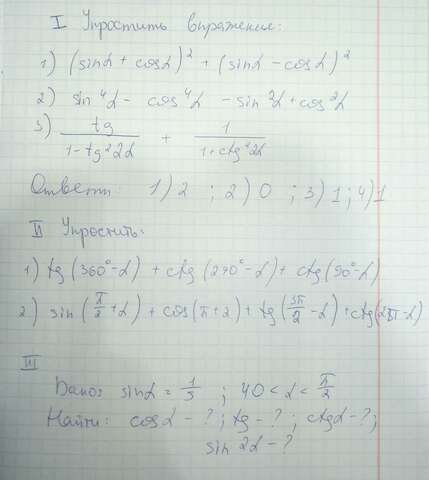 I Упростить выражение:
1) (sinα + cosα)² + (sinα - cosα)²
2) sin⁴α - cos⁴α - sin²α + cos²α
3) tg / 1 - tg²2α + 1 / 1 + ctg²2α
Ответы: 1) 2 ; 2) 0 ; 3) 1 ; 4) 1
II Упростить:
1) tg (360° - α) + ctg (270° - α) + ctg (90° - α)
2) sin (π/2 + α) + cos (π + 2) + tg (3π/2 - α) + ctg (2π - α)
III
Дано: sinα = 1/3 ; 40 < α < π/2
Найти: cosα - ? ; tg - ? ; ctgα - ? ;
sin 2α - ?